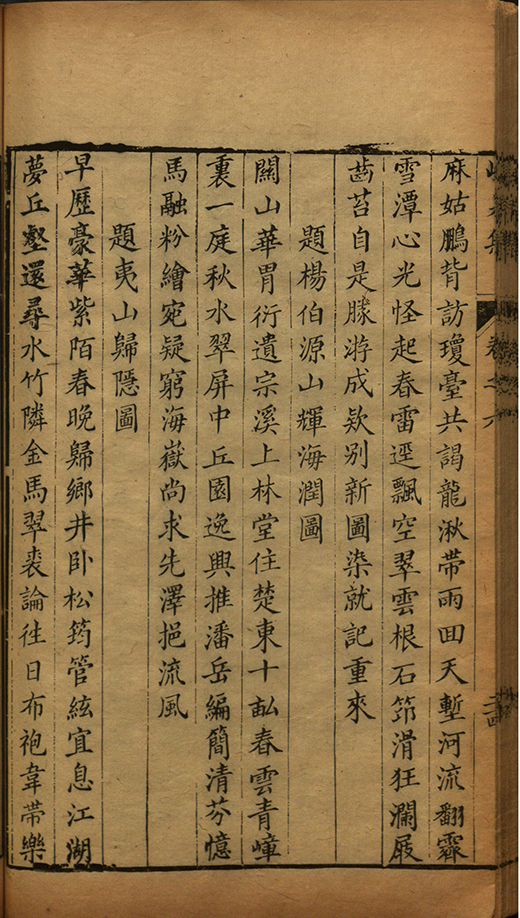 卷之六
麻姑鵬背訪瓊臺共謁龍湫帶雨回天塹河流翻霹
雪潭心光怪起春雷逕飄空翠雲根石笻滑狂瀾屐
齒苔自是勝游成欵别新圖染就記重來
題楊伯源山輝海潤圖
關山華胄衍遺宗溪上林堂住楚東十畝春雲青嶂
裏一庭秋水翠屏中丘園逸興推潘岳編簡清芬憶
馬融粉繪宛疑窮海嶽尚求先澤挹流風
題夷山歸隱圖
早歷豪華紫陌春晚歸鄉井卧松筠管絃宜息江湖
夢丘壑還尋水竹隣金馬翠裘論徃日布袍韋帶樂